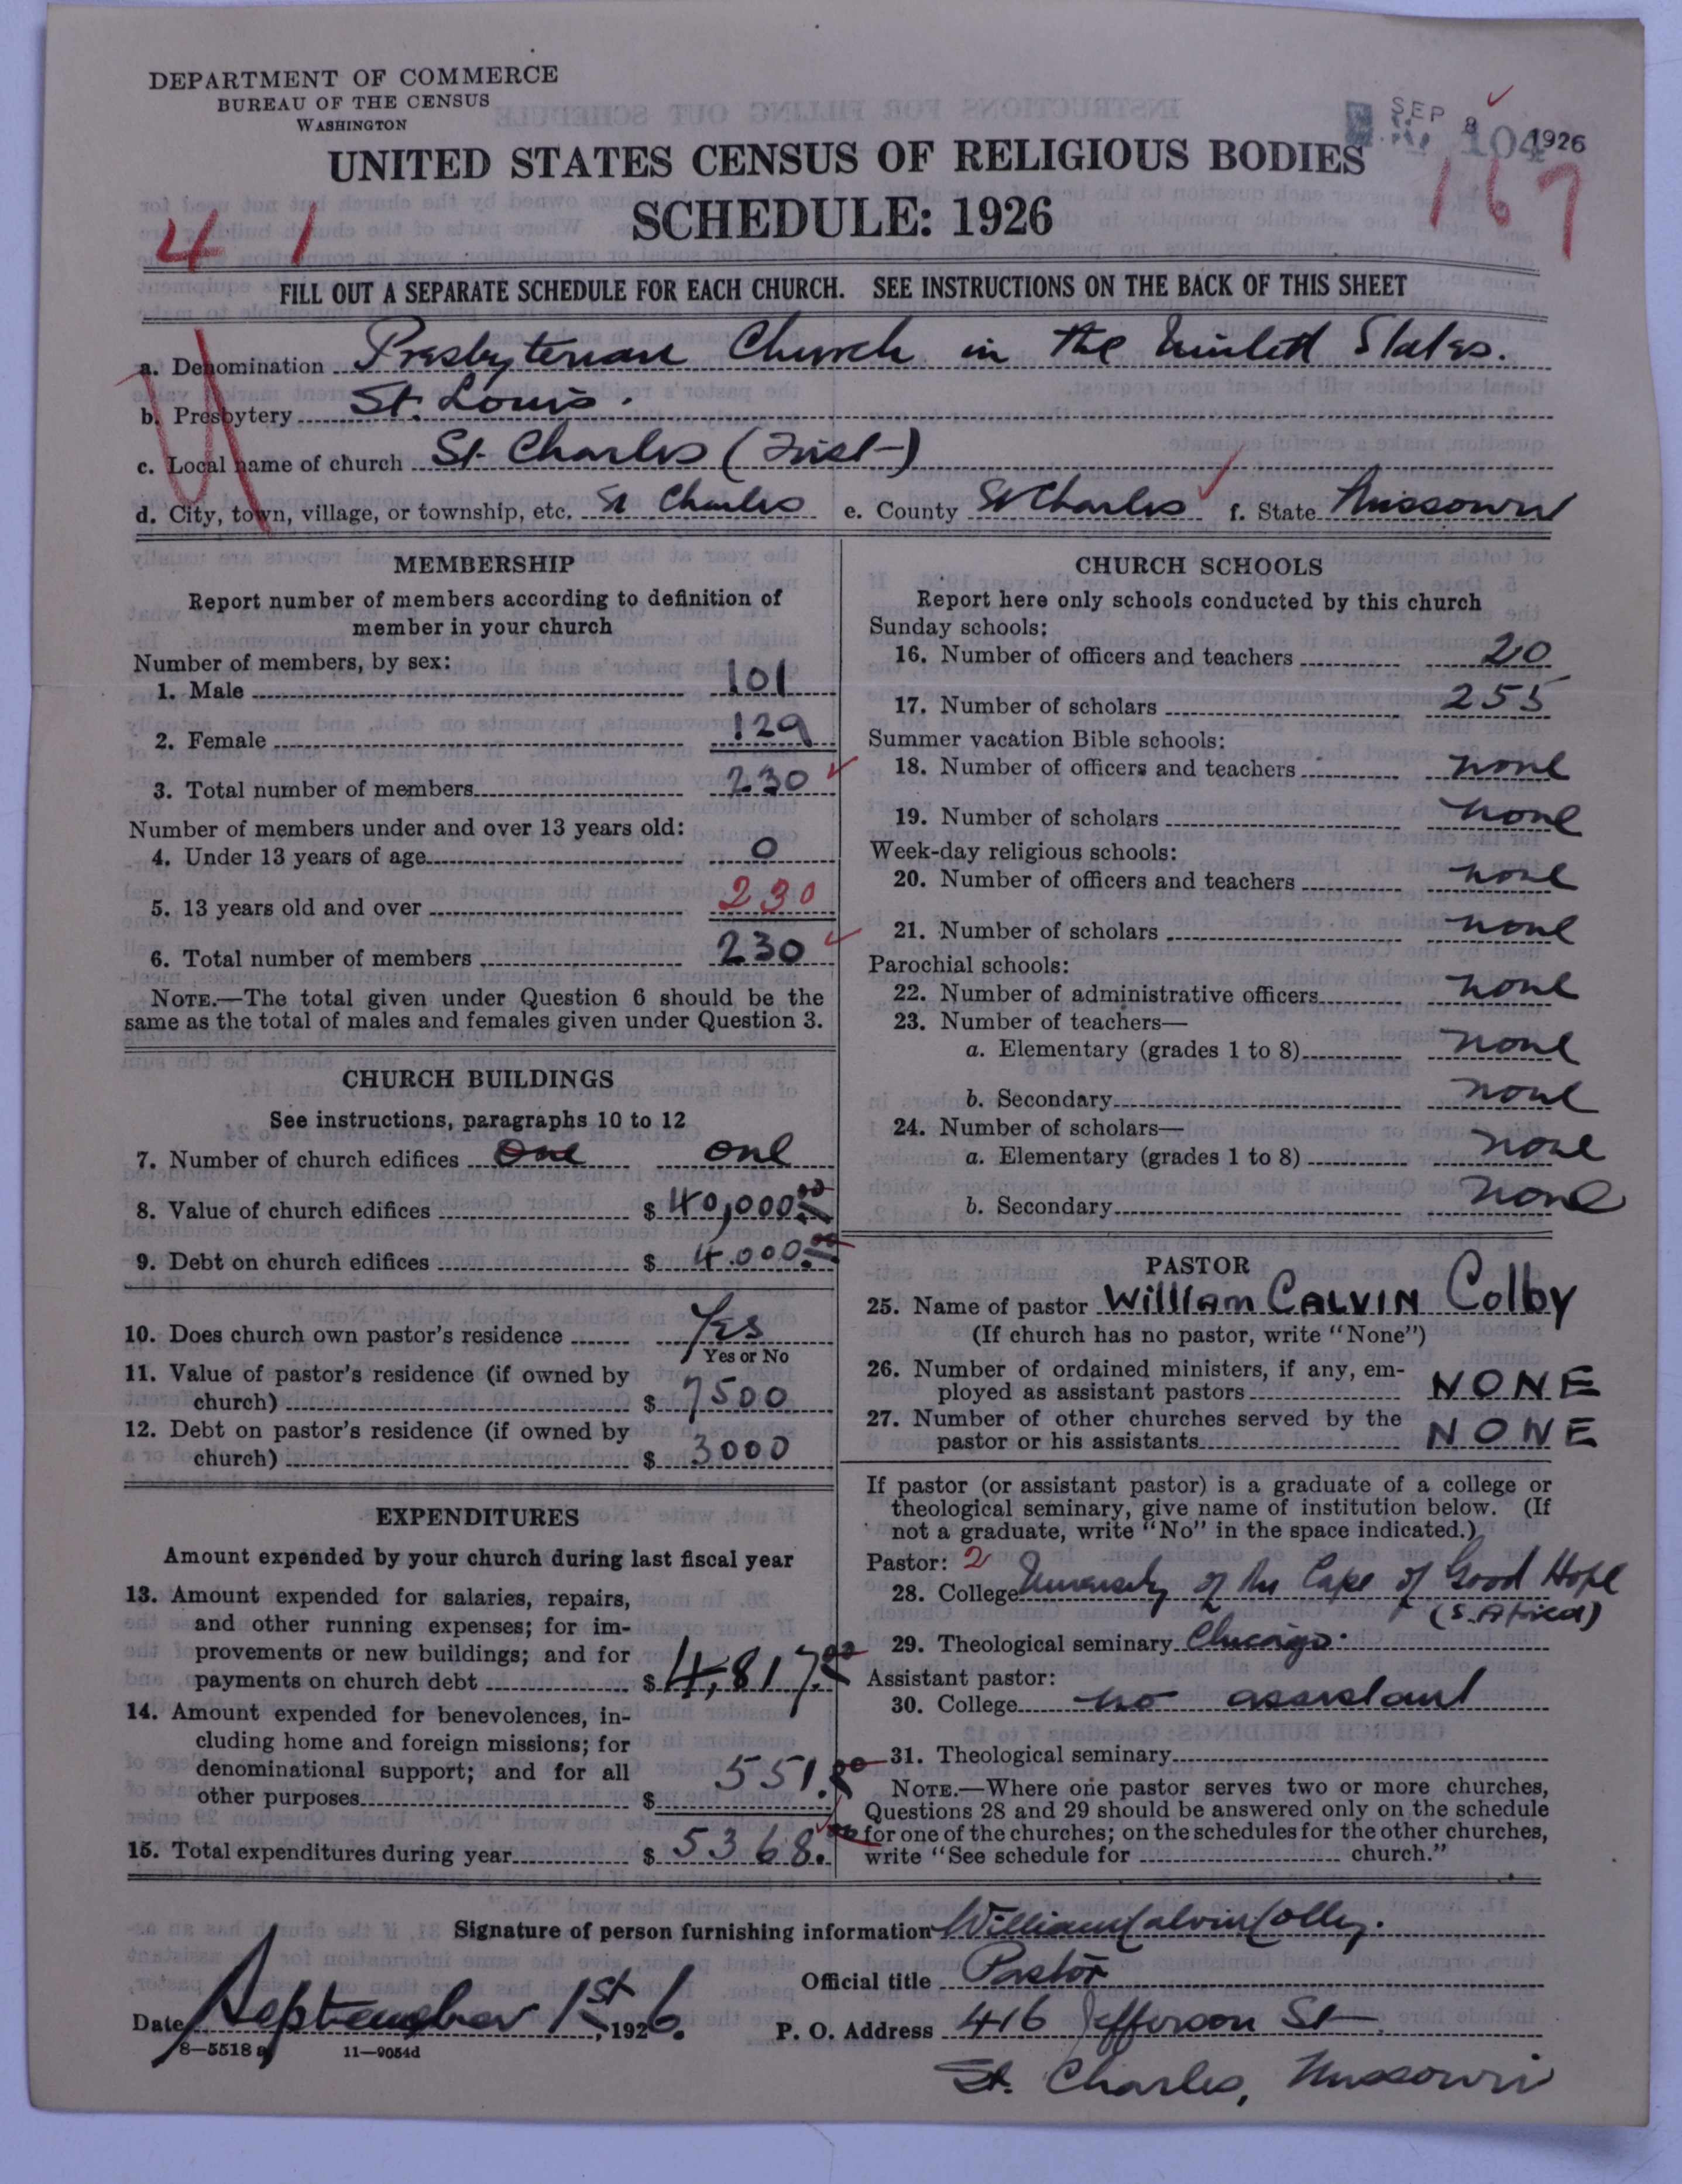 DEPARTMENT OF COMMERCE
BUREAU OF THE CENSUS
WASHINGTON
SEP 8 1926
104
UNITED STATES CENSUS OF RELIGIOUS BODIES
SCHEDULE: 1926
4 1
167
FILL OUT A SEPARATE SCHEDULE FOR EACH CHURCH. SEE INSTRUCTIONS ON THE BACK OF THIS SHEET
a. Denomination Presbyterian Church in the United States.
b. Presbytery St. Louis.
c. Local name of church St. Charles (First)
d. City, town, village, or township, etc. St Charles e. County St Charles f. State Missouri
MEMBERSHIP
Report number of members according to definition of
member in your church
Number of members, by sex:
1. Male 101
2. Female 129
3. Total number of members 230
Number of members under and over 13 years old:
4. Under 13 years of age 0
5. 13 years old and over 230
6. Total number of members 230
NOTE.—The total given under Question 6 should be the
same as the total of males and females given under Question 3.
CHURCH BUILDINGS
See instructions, paragraphs 10 to 12
7. Number of church edifices One one
8. Value of church edifices $ 40,000.00
9. Debt on church edifices $ 4.000.00
10. Does church own pastor's residence Yes
Yes or No
11. Value of pastor's residence (if owned by
church) $ 7500
12. Debt on pastor's residence (if owned by
church) $ 3000
EXPENDITURES
Amount expended by your church during last fiscal year
13. Amount expended for salaries, repairs,
and other running expenses; for im-
provements or new buildings; and for
payments on church debt $ 4,817.00
14. Amount expended for benevolences, in-
cluding home and foreign missions; for
denominational support; and for all
other purposes $ 551.00
15. Total expenditures during year $ 5368.00
CHURCH SCHOOLS
Report here only schools conducted by this church
Sunday schools:
16. Number of officers and teachers 20
17. Number of scholars 255
Summer vacation Bible schools:
18. Number of officers and teachers none
19. Number of scholars none
Week-day religious schools:
20. Number of officers and teachers none
21. Number of scholars none
Parochial schools:
22. Number of administrative officers none
23. Number of teachers—
a. Elementary (grades 1 to 8) none
b. Secondary none
24. Number of scholars—
a. Elementary (grades 1 to 8) none
b. Secondary none
PASTOR
25. Name of pastor William CALVIN Colby
(If church has no pastor, write "None")
26. Number of ordained ministers, if any, em-
ployed as assistant pastors NONE
27. Number of other churches served by the
pastor or his assistants NONE
If pastor (or assistant pastor) is a graduate of a college or
theological seminary, give name of institution below. (If
not a graduate, write "No" in the space indicated.)
Pastor: 2
28. College University of the Cape of Good Hope
(S. Africa)
29. Theological seminary Chicago.
Assistant pastor:
30. College no assistant
31. Theological seminary
NOTE.—Where one pastor serves two or more churches,
Questions 28 and 29 should be answered only on the schedule
for one of the churches; on the schedules for the other churches,
write "See schedule for church."
Signature of person furnishing information William Calvin Colby.
Official title Pastor
Date September 1st, 1926.
P. O. Address 416 Jefferson St
St. Charles, Missouri
8—5518 a
11—9054d